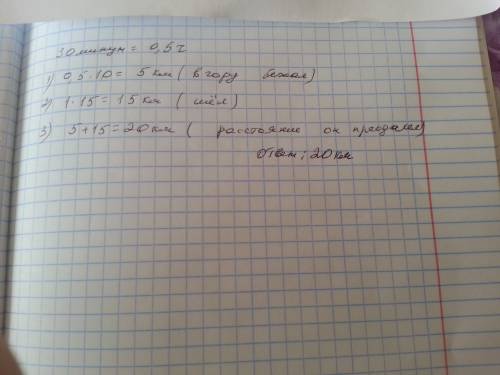 30 минут = 0,5 ч
1) 0,5 · 10 = 5 км ( в гору бежал)
2) 1 · 15 = 15 км ( шёл)
3) 5 + 15 = 20 км ( расстояние он преодалел)
Ответ: 20 км